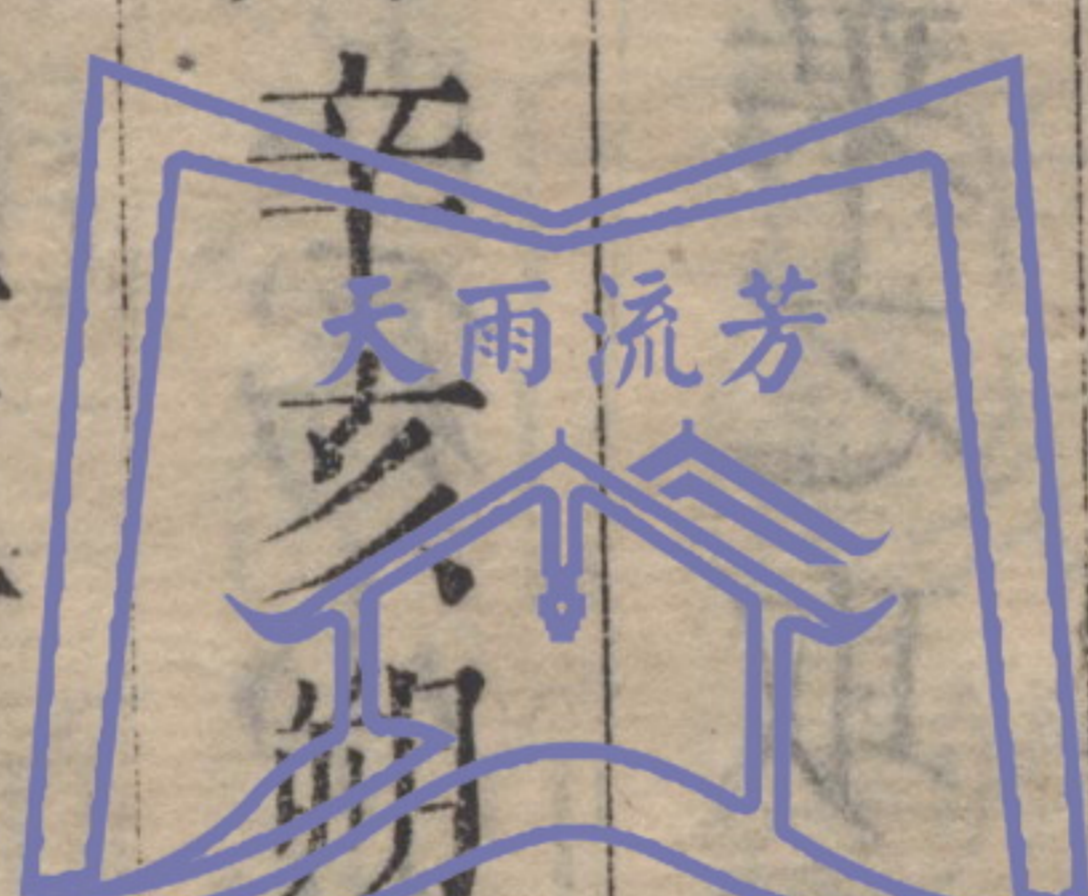 辛亥朔
天雨流芳